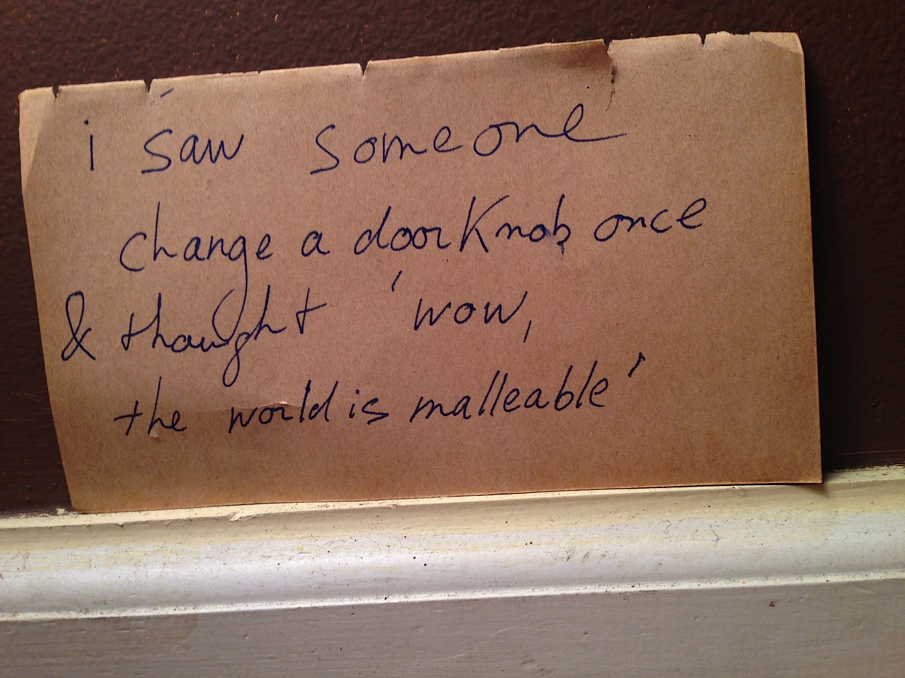 i saw someone
change a doorknob once
& thought 'wow,
the world is malleable'